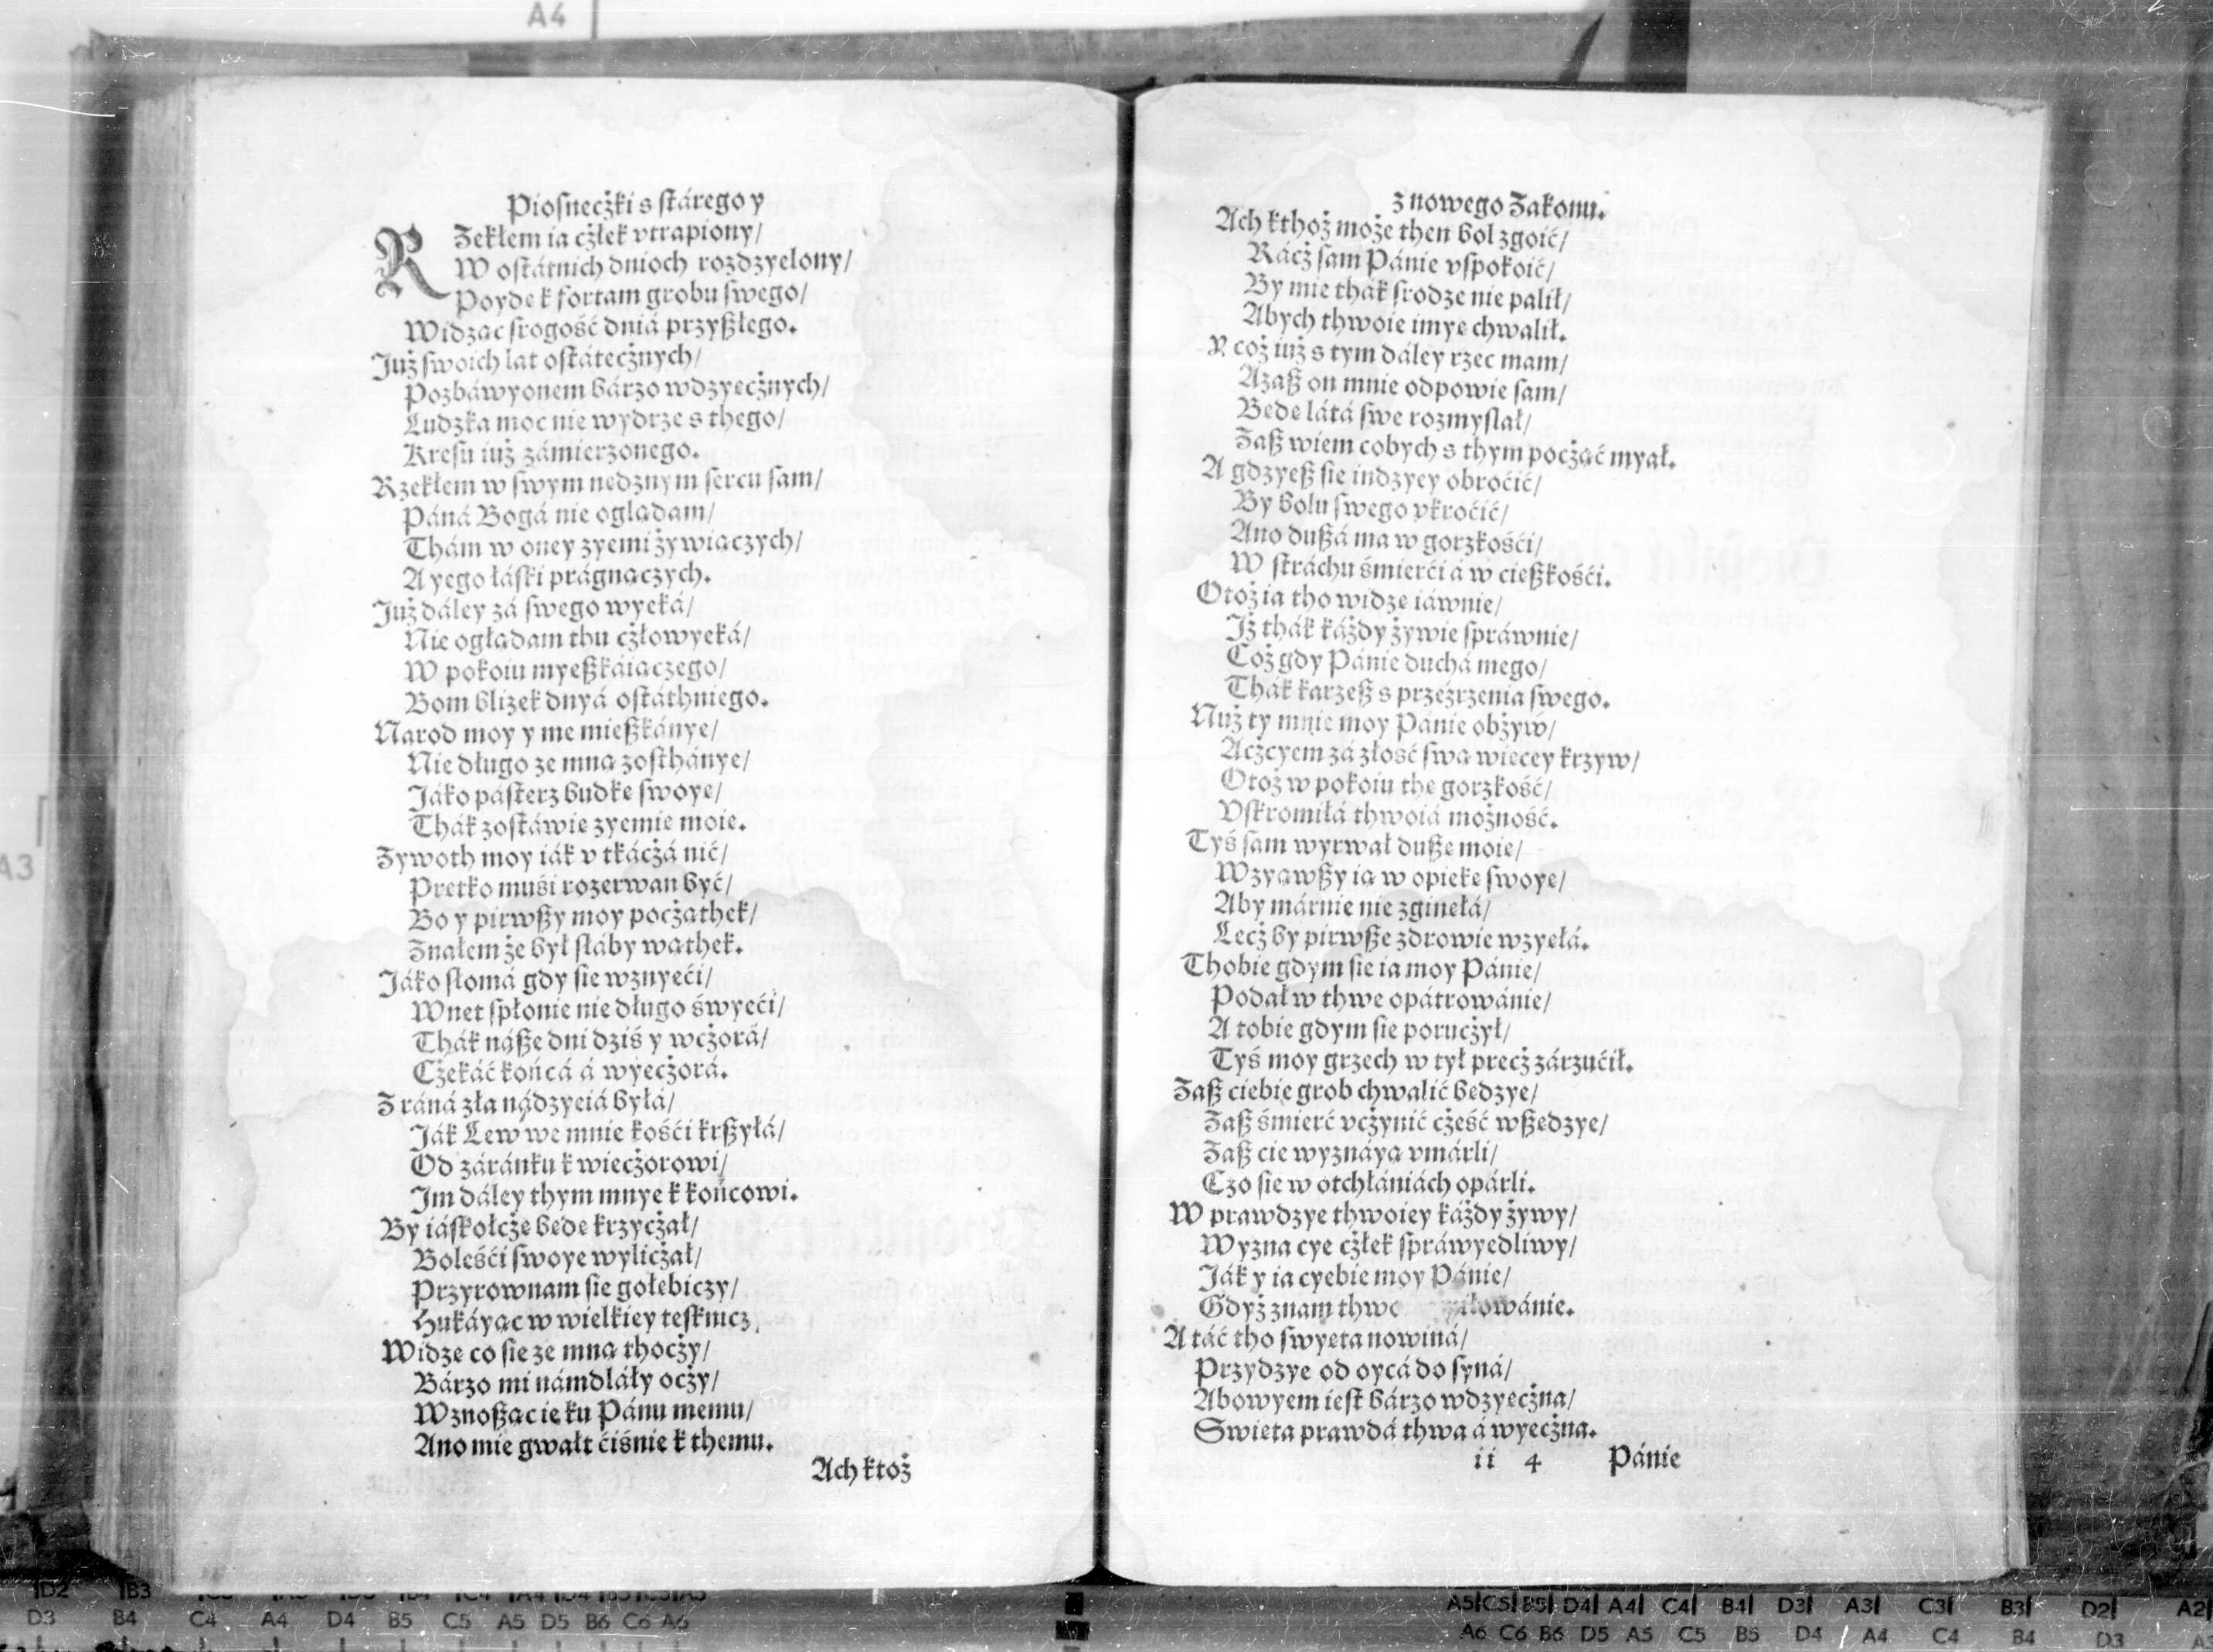 Piosnecżki s stárego y
RZekłem ia cżłek vtrapiony/
W ostátnich dnioch rozdzyelony/
Poyde k fortam grobu swego/
Widzac srogość dniá przyßłego.
Już swoich lat ostátecżnych/
Pozbáwyonem bárzo wdzyecżnych/
Ludzka moc nie wydrze s thego/
Kresu iuż zámierzonego.
Rzekłem w swym nedznym sercu sam/
Páná Bogá nie ogladam/
Thám w oney zyemi żywiaczych/
A yego łáski prágnaczych.
Już dáley zá swego wyeká/
Nie ogładam thu cżłowyeká/
W pokoiu myeßkáiaczego/
Bom blizek dnyá ostáthniego.
Narod moy y me mießkánye/
Nie długo ze mna zosthánye/
Jáko pásterz budke swoye/
Thák zostáwie zyemie moie.
Zywoth moy iák v tkácżá nić/
Pretko muśi rozerwan być/
Bo y pirwßy moy pocżathek/
Znałem że był słáby wathek.
Jáko słomá gdy sie wznyeći/
Wnet spłonie nie długo świeći/
Thák náße dni dziś y wcżorá/
Cżekáć końcá á wyecżorá.
Z ráná zła nádzyeiá byłá/
Ják Lew we mnie kośći krßyłá/
Od záránku k wiecżorowi/
Im dáley thym mnye k końcowi.
By iáskołcże bede krzycżał/
Boleśći swoye wylicżał/
Przyrownam sie gołebiczy/
Hukáyac w wielkiey teskniczy
Widze co sie ze mna thocży/
Bárzo mi námdláły ocży/
Wznoßac ie ku Pánu memu/
Ano mie gwałt ćiśnie k themu.
Ach ktoż
z nowego Zakonu.
Ach kthoż może then bol zgoić/
Rácż sam Pánie vspokoić/
By mie thák srodze nie palił/
Abych thwoie imye chwalił.
Y coż iuż s tym dáley rzec mam/
Azaß on mnie odpowie sam/
Bede látá swe rozmyslał/
Zaß wiem cobych s thym pocżać myał.
A gdzyeß sie indzyey obroćić/
By bolu swego vkroćić/
Ano dußá ma w gorzkośći/
W stráchu śmierći á w cießkośći.
Otoż ia tho widze iáwnie/
Iż thák káżdy żywie spráwnie/
Coż gdy Pánie duchá mego/
Thák karzeß s przeźrzenia swego.
Nuż ty mnie moy Pánie obżyw/
Acżcyem zá złość swa wiecey krzyw/
Otoż w pokoiu the gorzkość/
Vskromiłá thwoiá możność.
Tyś sam wyrwał duße moie/
Wzyawßy ia w opieke swoye/
Aby márnie nie zginełá/
Lecż by pirwße zdrowie wzyełá.
Thobie gdym sie ia moy Pánie/
Podał w thwe opátrowánie/
A tobie gdym sie porucżył/
Tyś moy grzech w tył precż zárzućił.
Zaß ciebie grob chwalić bedzye/
Zaß śmierć vcżynić cżeść wßedzye/
Zaß cie wyznáya vmárli/
Czo sie w otchłániách opárli.
W prawdzye thwoiey káżdy żywy/
Wyzna cye cżłek spráwyedliwy/
Ják y ia cyebie moy Pánie/
Gdyż znam thwe zmiłowánie.
A táć tho swyeta nowiná/
Przydzye od oycá do syná/
Abowyem iest bárzo wdzyecżna/
Swieta prawdá thwa á wyecżna.
ii 4 Pánie